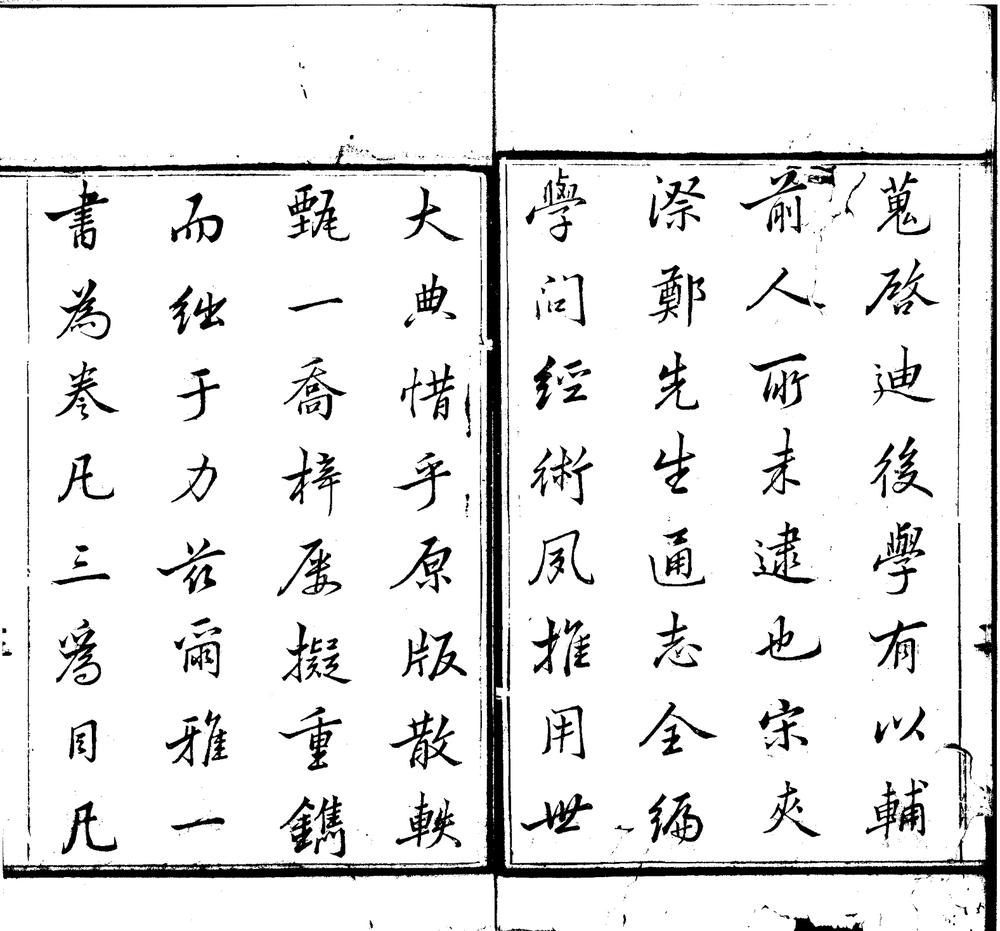 蒐啓迪後學有以輔
前人所未逮也宋夾
漈鄭先生通志全編
學問經術夙推用世
大典惜乎原版散軼
甄一喬梓屡擬重鐫
而絀于力茲爾雅一
書為卷凡三為目凡